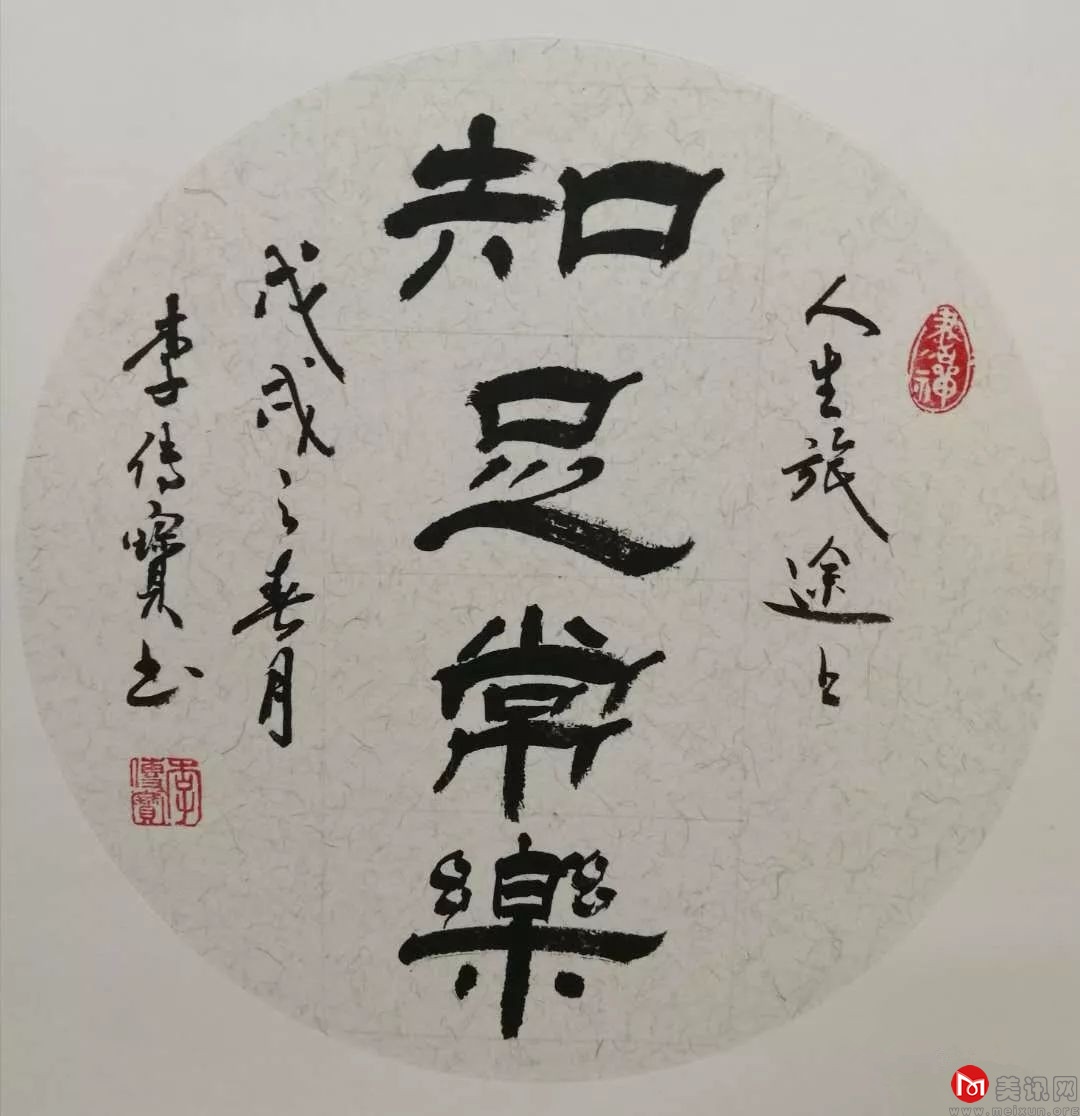 人生旅途上
知足常樂
戊戌之春月
李傳寶书
李傳寶
美讯网
www.meixun.org